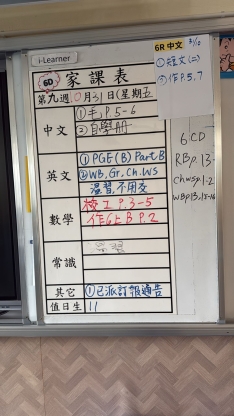 i-Learner
6D 家課表
第九週10月31日(星期五
中文
①毛P.5-6
②自學冊
英文
①PGE(B) Part B
②WB, Gr, Ch.WS
溫習,不用交
數學
校工P.3-5
作GEB P.2
常識
其它
①已派訂報通告
值日生
11
6R 中文 31/10
①短文(二)
②作P.5,7
6CD
RBp.13-
chwsp.1-2